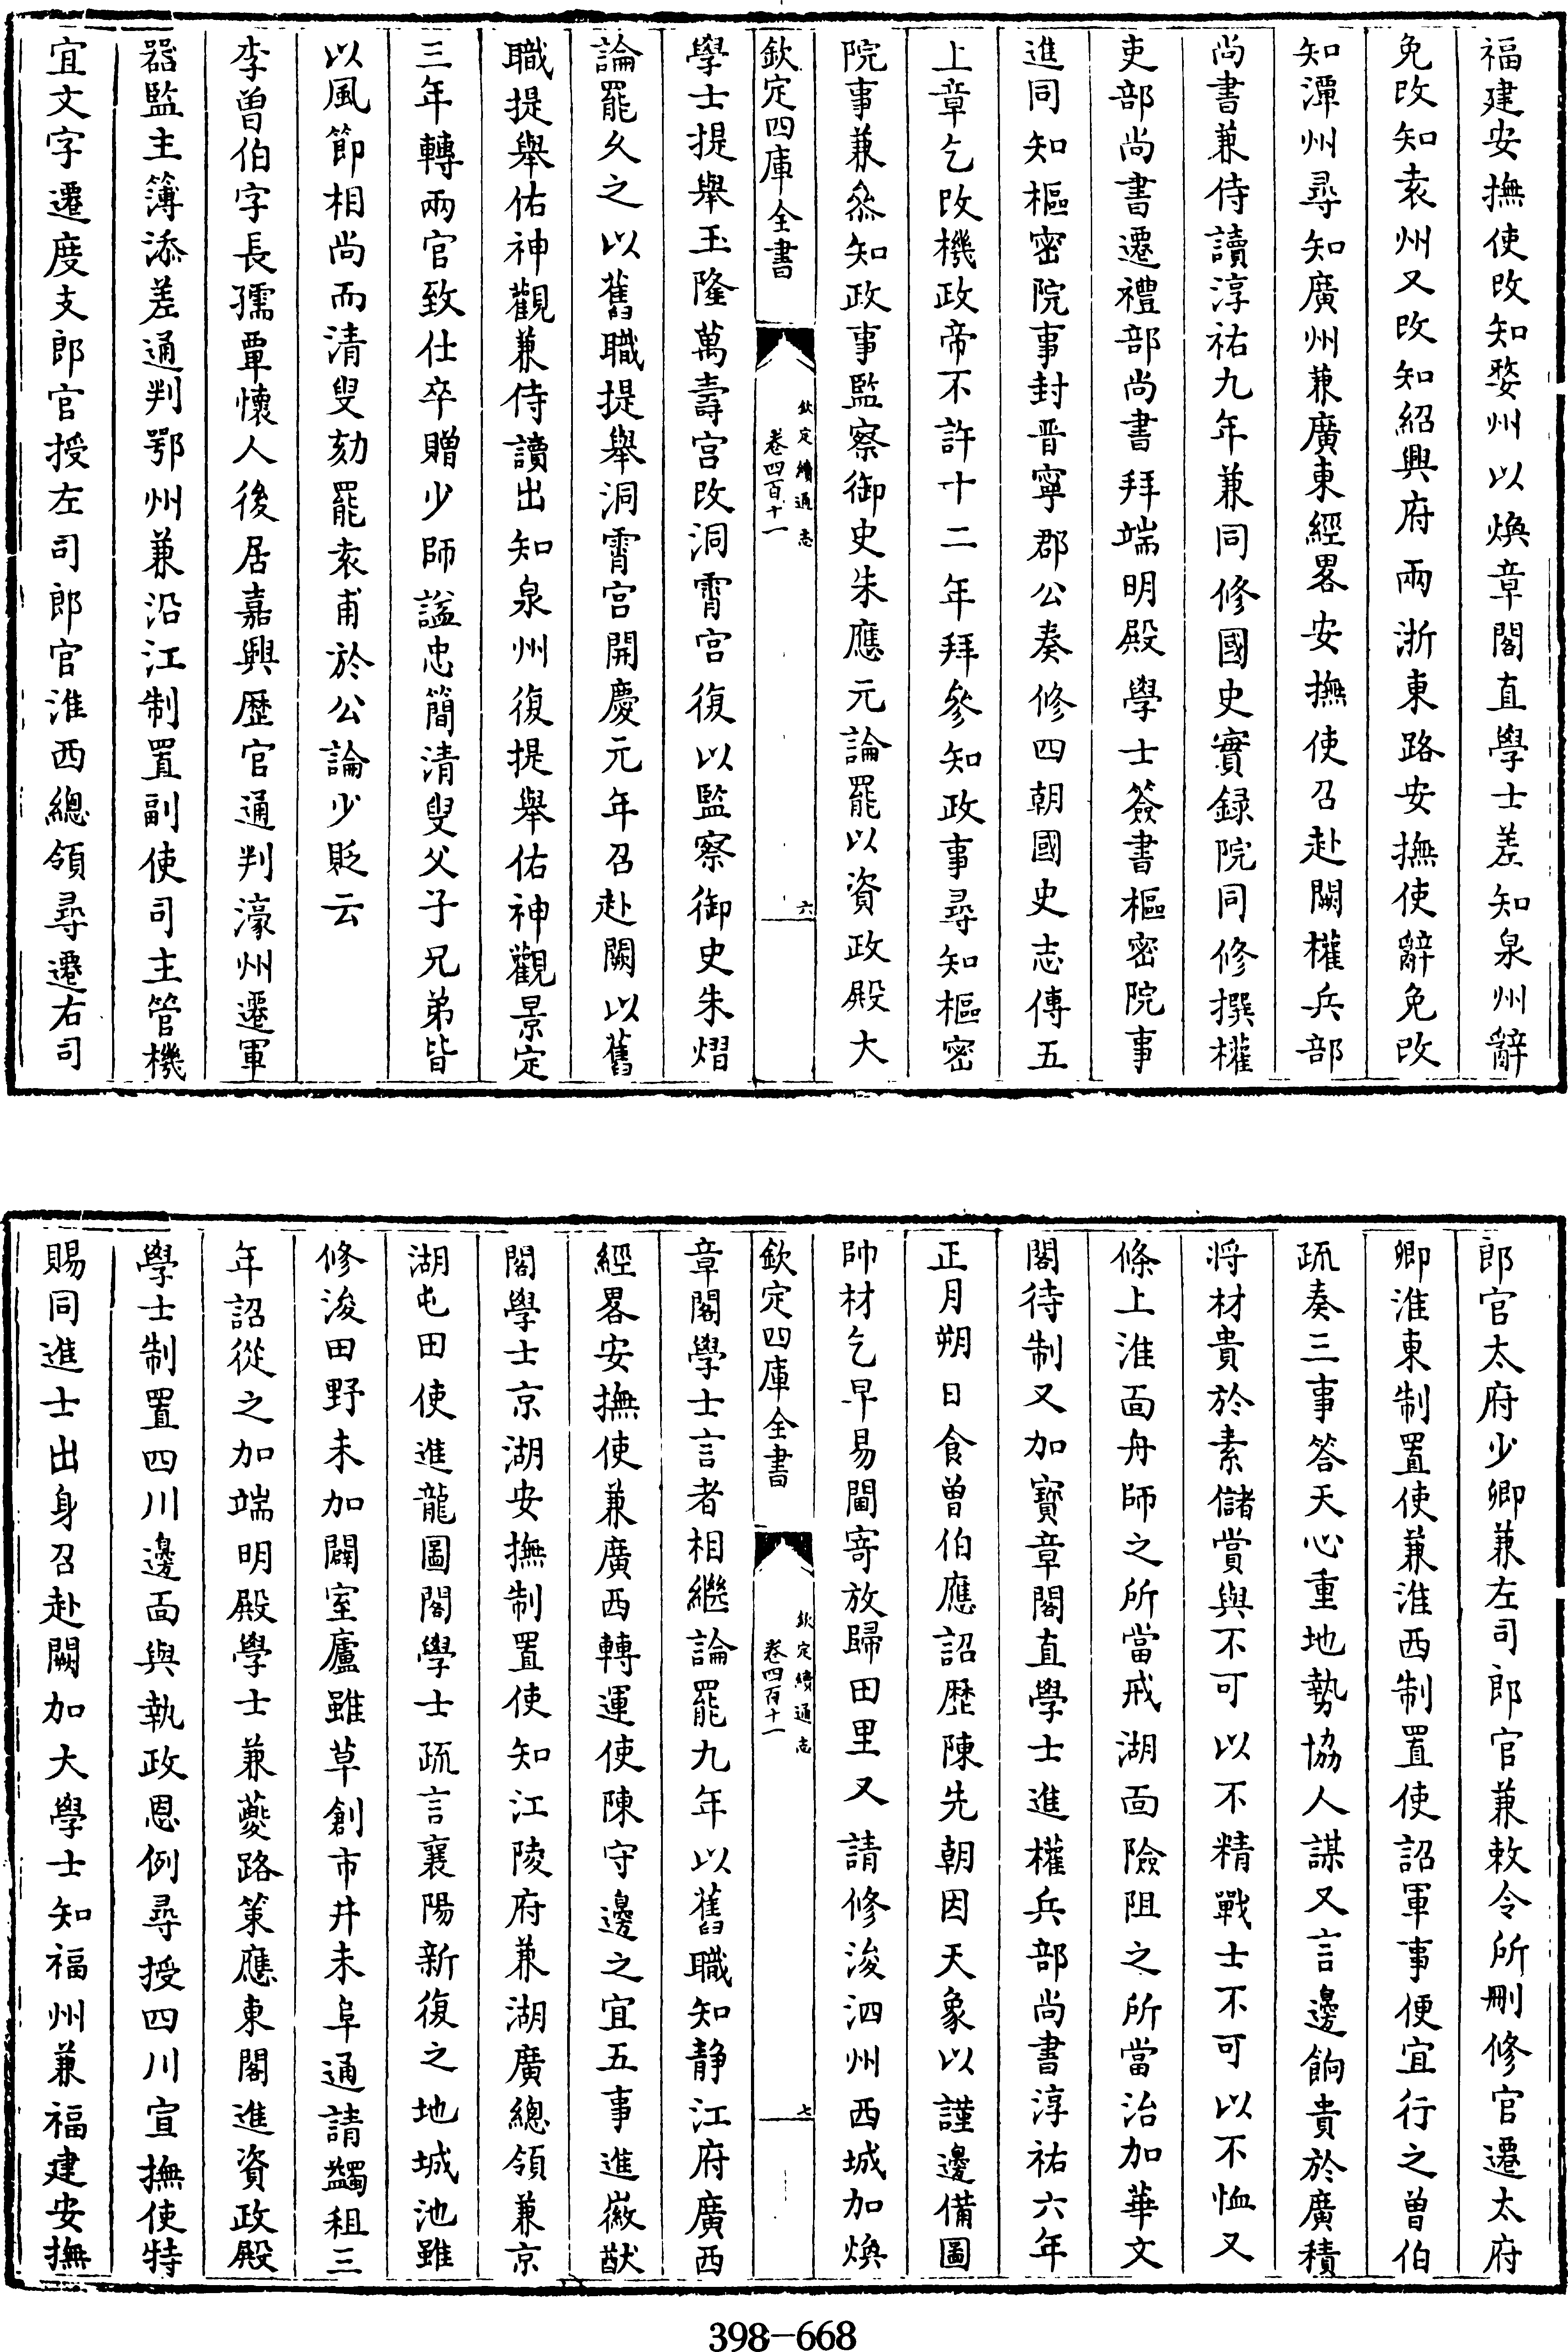 福建安撫使改知婺州以煥章閣直學士差知泉州辭
免改知袁州又改知紹興府兩浙東路安撫使辭免改
知潭州尋知廣州兼廣東經畧安撫使召赴闕權兵部
尚書兼侍讀淳祐九年兼同修國史實録院同修撰權
吏部尚書遷禮部尚書拜端明殿學士簽書樞密院事
進同知樞密院事封晋寧郡公奏修四朝國史志傳五
上章乞改機政帝不許十二年拜參知政事尋知樞密
院事兼叅知政事監察御史朱應元論罷以資政殿大
欽定四庫全書
欽定續通志
卷四百十一
六
學士提舉玉隆萬壽宮改洞霄宮復以監察御史朱熠
論罷久之以舊職提舉洞霄宮開慶元年召赴闕以舊
職提舉佑神觀兼侍讀出知泉州復提舉佑神觀景定
三年轉兩官致仕卒贈少師諡忠簡清叟父子兄弟皆
以風節相尚而清叟劾罷袁甫於公論少貶云
李曾伯字長孺覃懷人後居嘉興歷官通判濠州遷軍
器監主簿添差通判鄂州兼沿江制置副使司主管機
宜文字遷度支郎官授左司郎官淮西總領尋遷右司
郎官太府少卿兼左司郎官兼敕令所刪修官遷太府
卿淮東制置使兼淮西制置使詔軍事便宜行之曾伯
疏奏三事答天心重地勢協人謀又言邊餉貴於廣積
將材貴於素儲賞與不可以不精戰士不可以不恤又
條上淮面舟師之所當戒湖面險阻之所當治加華文
閣待制又加寶章閣直學士進權兵部尚書淳祐六年
正月朔日食曾伯應詔歴陳先朝因天象以謹邊備圖
帥材乞早易閫寄放歸田里又請修浚泗州西城加煥
欽定四庫全書
欽定續通志
卷四百十一
七
章閣學士言者相繼論罷九年以舊職知静江府廣西
經畧安撫使兼廣西轉運使陳守邊之宜五事進徽猷
閣學士京湖安撫制置使知江陵府兼湖廣總領兼京
湖屯田使進龍圖閣學士疏言襄陽新復之地城池雖
修浚田野未加闢室廬雖草創市井未阜通請蠲租三
年詔從之加端明殿學士兼夔路策應東閣進資政殿
學士制置四川邊面與執政恩例尋授四川宣撫使特
賜同進士出身召赴闕加大學士知福州兼福建安撫
398-668